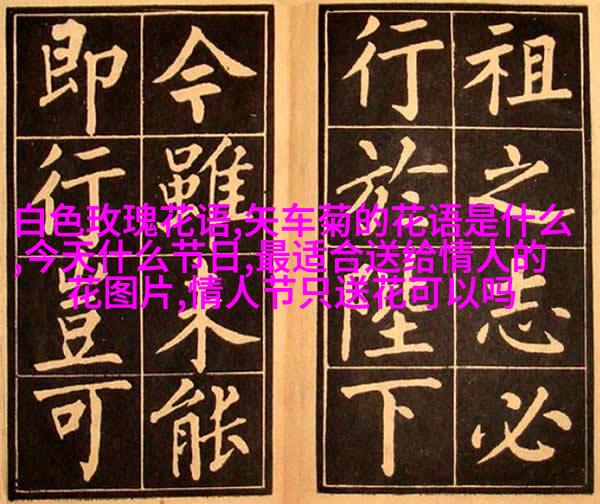 祖之志必
行於陛下
今雖未能
即行豈可
白色玫瑰花语,矢车菊的花语是什么
,今天什么节日,最适合送给情人的
花图片,情人节只送花可以吗